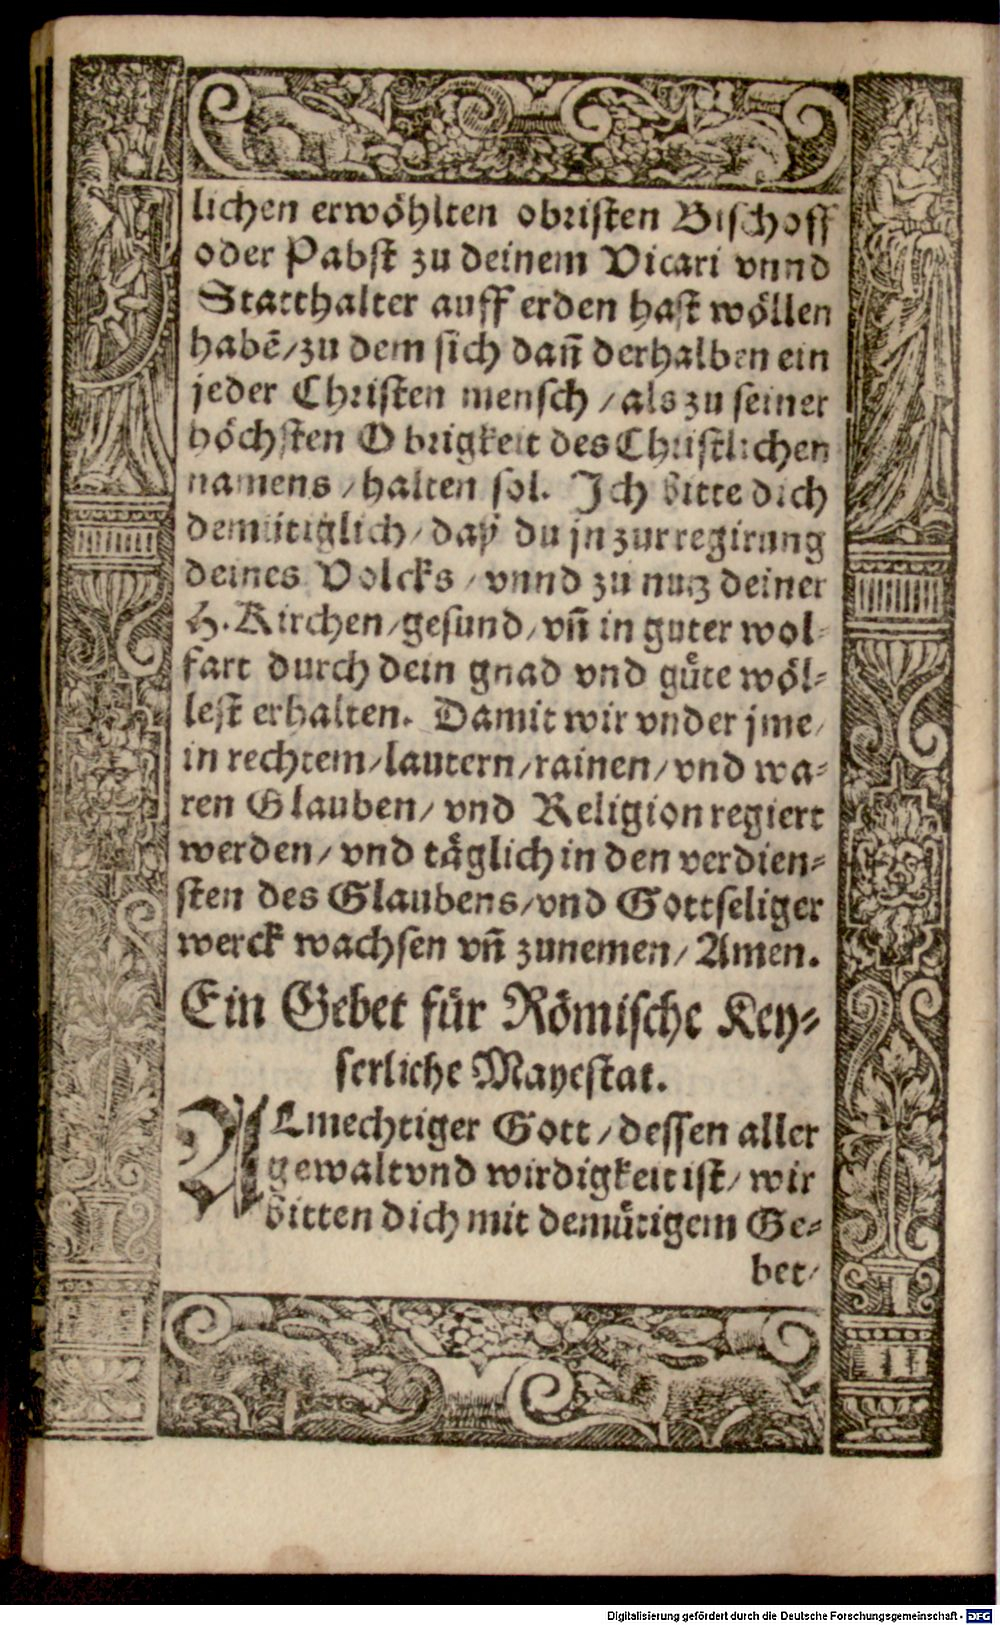 lichen erwöhlten obristen Bischoff
oder Pabst zu deinem Vicari vnnd
Statthalter auff erden hast wöllen
habẽ/zu dem sich dañ derhalben ein
jeder Christen mensch / als zu seiner
höchsten Obrigkeit des Christlichen
namens / halten sol. Ich bitte dich
demütiglich / daß du jn zur regirung
deines Volcks / vnnd zu nutz deiner
H. Kirchen/gesund/vñ in guter wol-
fart durch dein gnad vnd güte wöl-
lest erhalten. Damit wir vnder jme/
in rechtem/lautern/rainen/vnd wa-
ren Glauben/ vnd Religion regiert
werden/ vnd täglich in den verdien-
sten des Glaubens/vnd Gottseliger
werck wachsen vñ zunemen/ Amen.
Ein Gebet für Römische Key-
serliche Mayestat.
ALmechtiger Gott / dessen aller
gewalt vnd wirdigkeit ist/ wir
bitten dich mit demütigem Ge-
bet/
Digitalisierung gefördert durch die Deutsche Forschungsgemeinschaft - DFG